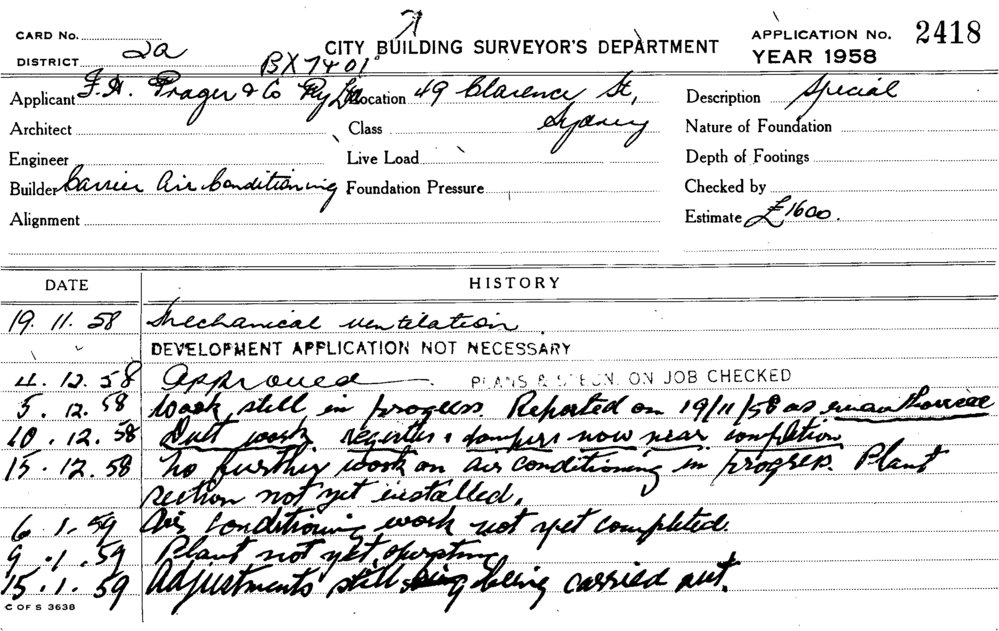 CARD No.
DISTRICT 2a
BX7401
CITY BUILDING SURVEYOR'S DEPARTMENT
APPLICATION No. 2418
YEAR 1958
Applicant F. H. Prager & Co Pty Ltd Location 49 Clarence St, Description Special
Sydney
Architect Class Nature of Foundation
Engineer Live Load Depth of Footings
Builder Carrier Air Conditioning Foundation Pressure Checked by
Alignment Estimate £1600.
DATE HISTORY
19. 11. 58 Mechanical ventilation
DEVELOPMENT APPLICATION NOT NECESSARY
4. 12. 58 Approved PLANS & SPECN. ON JOB CHECKED
5. 12. 58 Work still in progress. Reported on 19/11/58 as
10. 12. 58 Duct work, registers & dampers now near completion
15. 12. 58 No further work on air conditioning in progress. Plant
section not yet installed.
6. 1. 59 Air conditioning work not yet completed.
9. 1. 59 Plant not yet operating
15. 1. 59 Adjustments still being carried out.
C OF S 3638